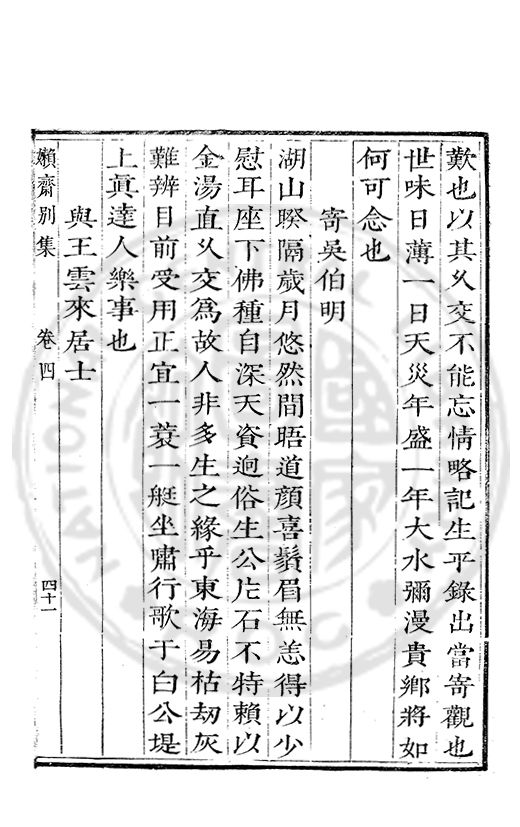 歎也以其久交不能忘情略記生平錄出當寄觀也
世味日薄一日天災年盛一年大水彌漫貴鄉將如
何可念也
寄吳伯明
湖山睽隔歲月悠然間晤道顏喜鬚眉無恙得以少
慰耳座下佛種自深天資迥俗生公片石不特賴以
金湯直久交為故人非多生之緣乎東海易枯劫灰
難辨目前受用正宜一蓑一艇坐嘯行歌于白公堤
上眞達人樂事也
與王雲來居士
嬾齋別集 卷四 四十一